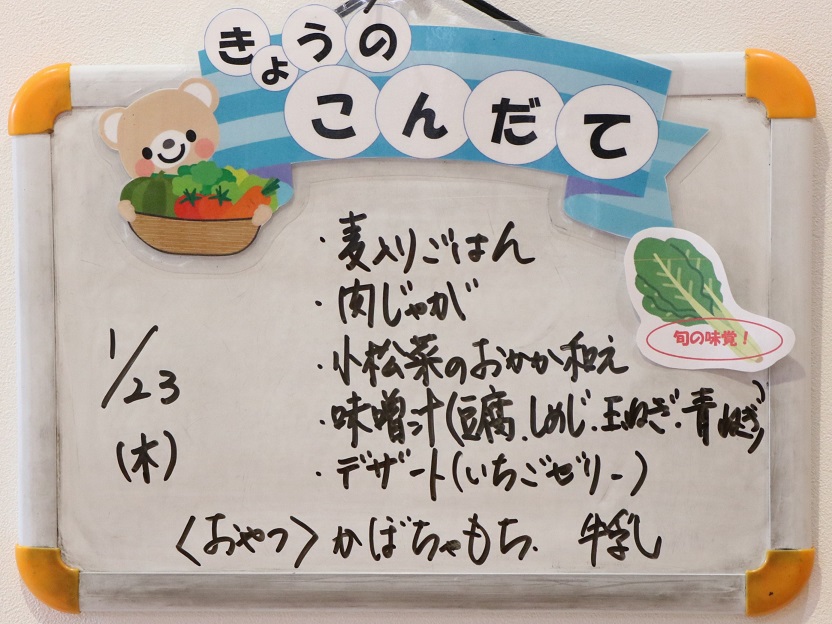 きょうの
こんだて
・麦入りごはん
・肉じゃが
旬の味覚！
1/23
(木)
・小松菜のおかか和え
・味噌汁(豆腐、しめじ、玉ねぎ、青ねぎ)
・デザート(いちごゼリー)
〈おやつ〉かぼちゃもち、牛乳